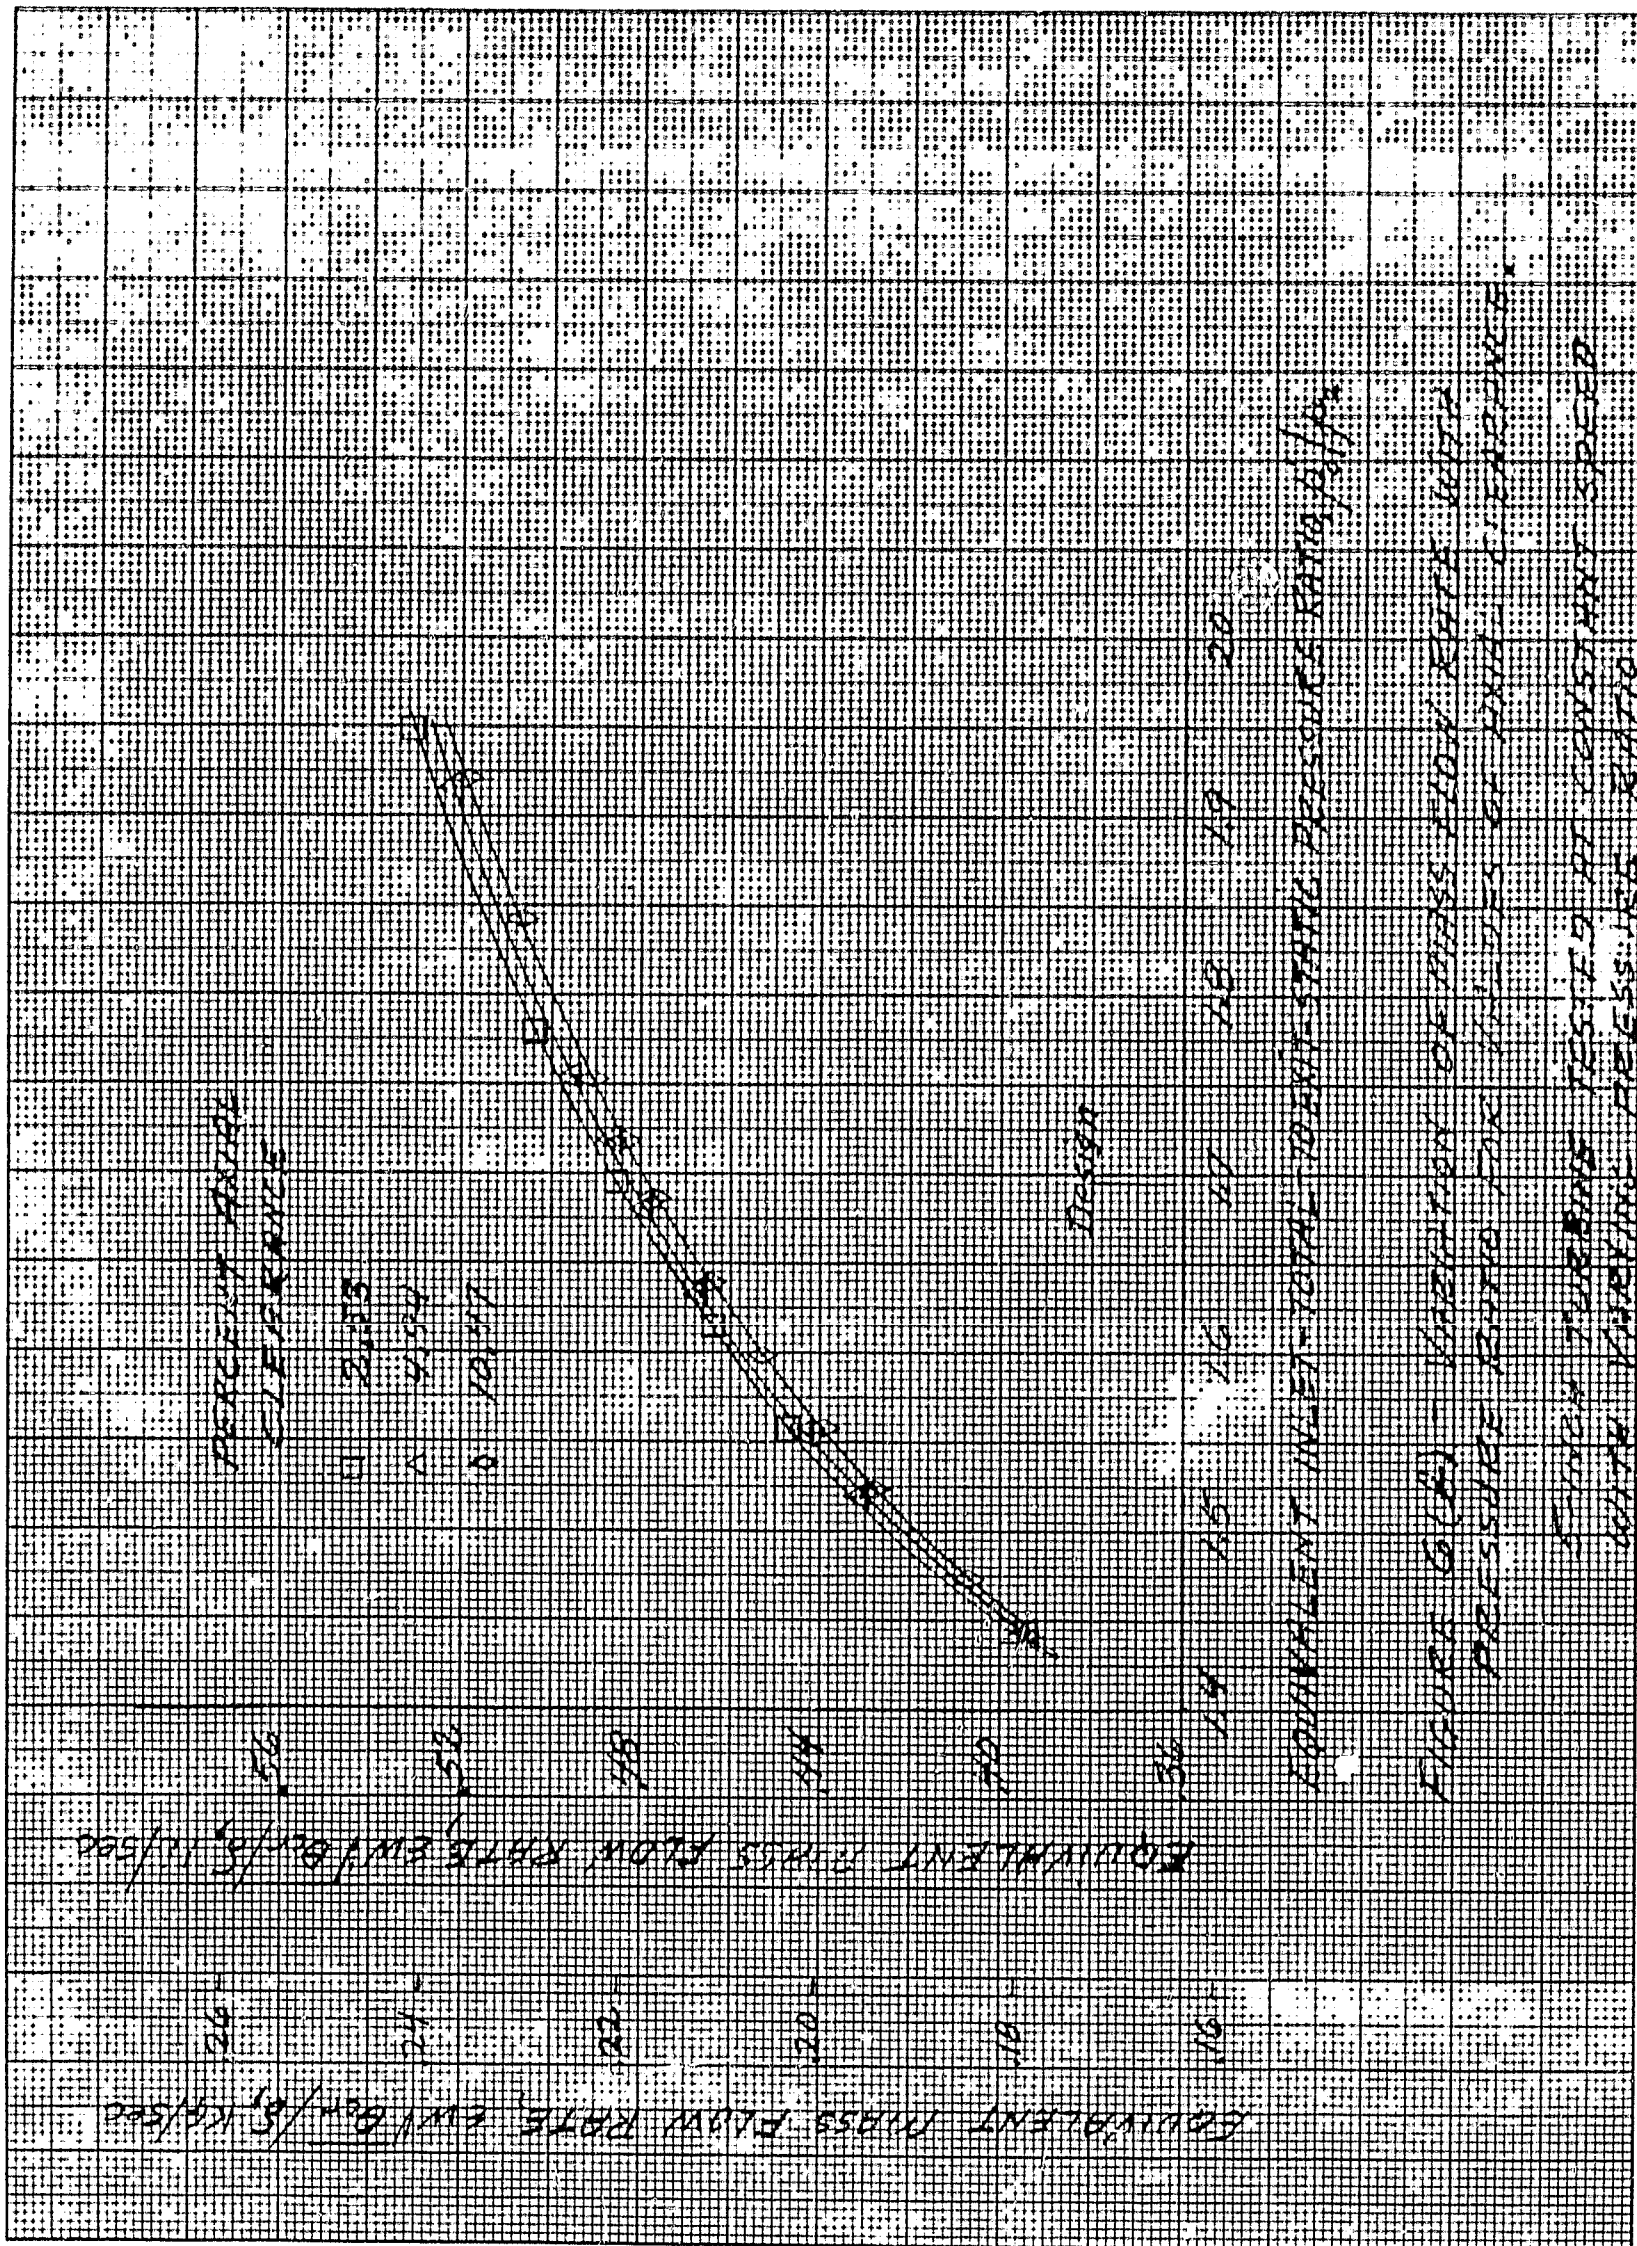 PERCENT AXIAL
CLEARANCE
□ 2.53
△ 4.94
◊ 10.47
EQUIVALENT MASS FLOW RATE, EW√θcr/δ, KG/SEC
.26
.24
.22
.20
.18
.16
EQUIVALENT MASS FLOW RATE, EW√θcr/δ,
.56
.52
.48
.44
.40
.36
Design
1.4 1.5 1.6 1.7 1.8 1.9 2.0
EQUIVALENT INLET-TOTAL-TO EXIT-STATIC PRESSURE RATIO,
FIGURE 6 - VARIATION OF MASS FLOW RATE WITH
PRESSURE RATIO FOR VALUES OF AXIAL CLEARANCE.
5-INCH TURBINE TESTED AT CONSTANT SPEED
WITH VARYING PRESSURE RATIO